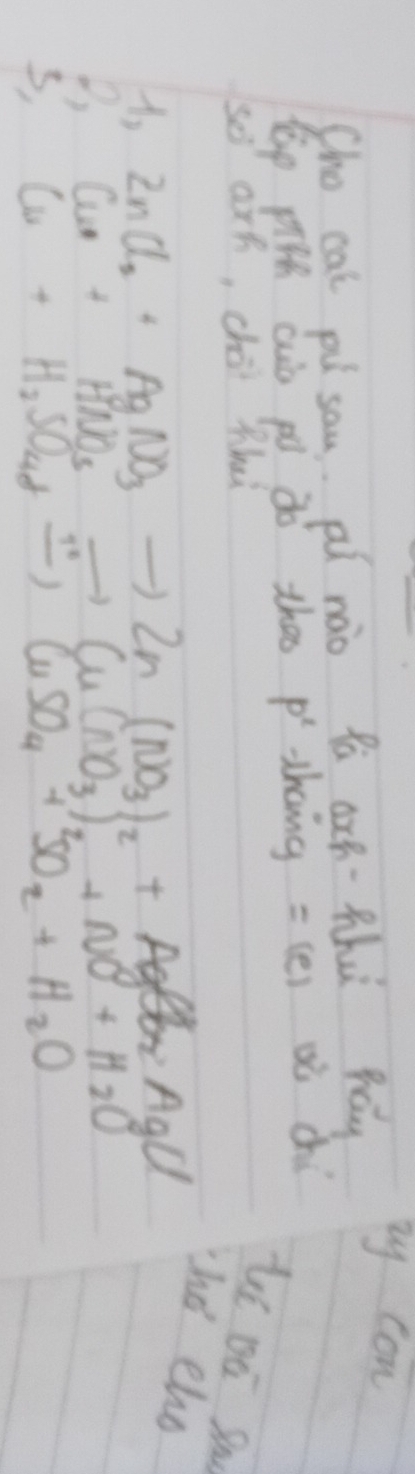 Cho các pứ sau, pứ nào là oxh-khử hãy
lập ptth của pứ đó theo p² thăng = (e) và chỉ
số oxh, chất khử
1, ZnCl₂ + AgNO₃ → Zn(NO₃)₂ + AgCl
2, Cu + HNO₃ → Cu(NO₃)₂ + NO + H₂O
3, Cu + H₂SO₄đ —t°→ CuSO₄ + SO₂ + H₂O
ry con
thơ cho